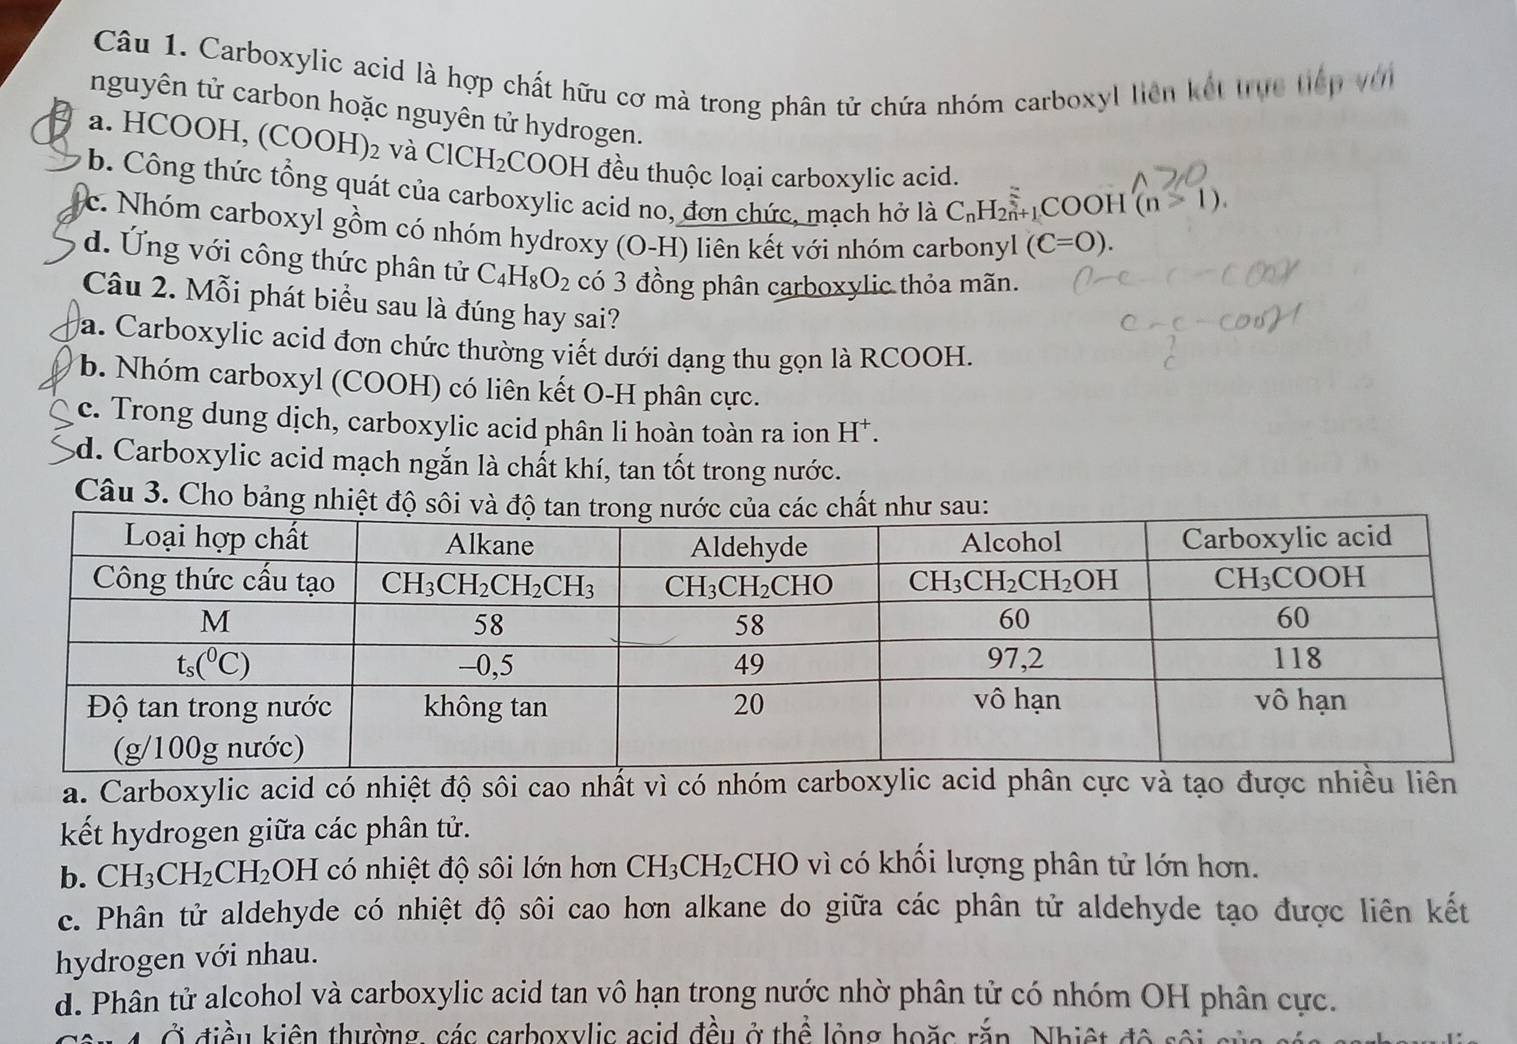 Câu 1. Carboxylic acid là hợp chất hữu cơ mà trong phân tử chứa nhóm carboxyl liên kết trực tiếp với
nguyên tử carbon hoặc nguyên tử hydrogen.
Đ a. HCOOH, (COOH)₂ và ClCH₂COOH đều thuộc loại carboxylic acid.
S b. Công thức tổng quát của carboxylic acid no, đơn chức, mạch hở là CₙH₂ₙ₊₁COOH (n ≥ 1).
n ≥ 0
Đ c. Nhóm carboxyl gồm có nhóm hydroxy (O-H) liên kết với nhóm carbonyl (C=O).
S d. Ứng với công thức phân tử C₄H₈O₂ có 3 đồng phân carboxylic thỏa mãn.
C-C-C-COOH
Câu 2. Mỗi phát biểu sau là đúng hay sai?
C-C-COOH
C
Đ a. Carboxylic acid đơn chức thường viết dưới dạng thu gọn là RCOOH.
Đ b. Nhóm carboxyl (COOH) có liên kết O-H phân cực.
S c. Trong dung dịch, carboxylic acid phân li hoàn toàn ra ion H⁺.
S d. Carboxylic acid mạch ngắn là chất khí, tan tốt trong nước.
Câu 3. Cho bảng nhiệt độ sôi và độ tan trong nước của các chất như sau:
Loại hợp chất Alkane Aldehyde Alcohol Carboxylic acid
Công thức cấu tạo CH₃CH₂CH₂CH₃ CH₃CH₂CHO CH₃CH₂CH₂OH CH₃COOH
M 58 58 60 60
tₛ(⁰C) –0,5 49 97,2 118
Độ tan trong nước không tan 20 vô hạn vô hạn
(g/100g nước)
a. Carboxylic acid có nhiệt độ sôi cao nhất vì có nhóm carboxylic acid phân cực và tạo được nhiều liên
kết hydrogen giữa các phân tử.
b. CH₃CH₂CH₂OH có nhiệt độ sôi lớn hơn CH₃CH₂CHO vì có khối lượng phân tử lớn hơn.
c. Phân tử aldehyde có nhiệt độ sôi cao hơn alkane do giữa các phân tử aldehyde tạo được liên kết
hydrogen với nhau.
d. Phân tử alcohol và carboxylic acid tan vô hạn trong nước nhờ phân tử có nhóm OH phân cực.
Ở điều kiện thường, các carboxylic acid đều ở thể lỏng hoặc rắn. Nhiệt độ sôi